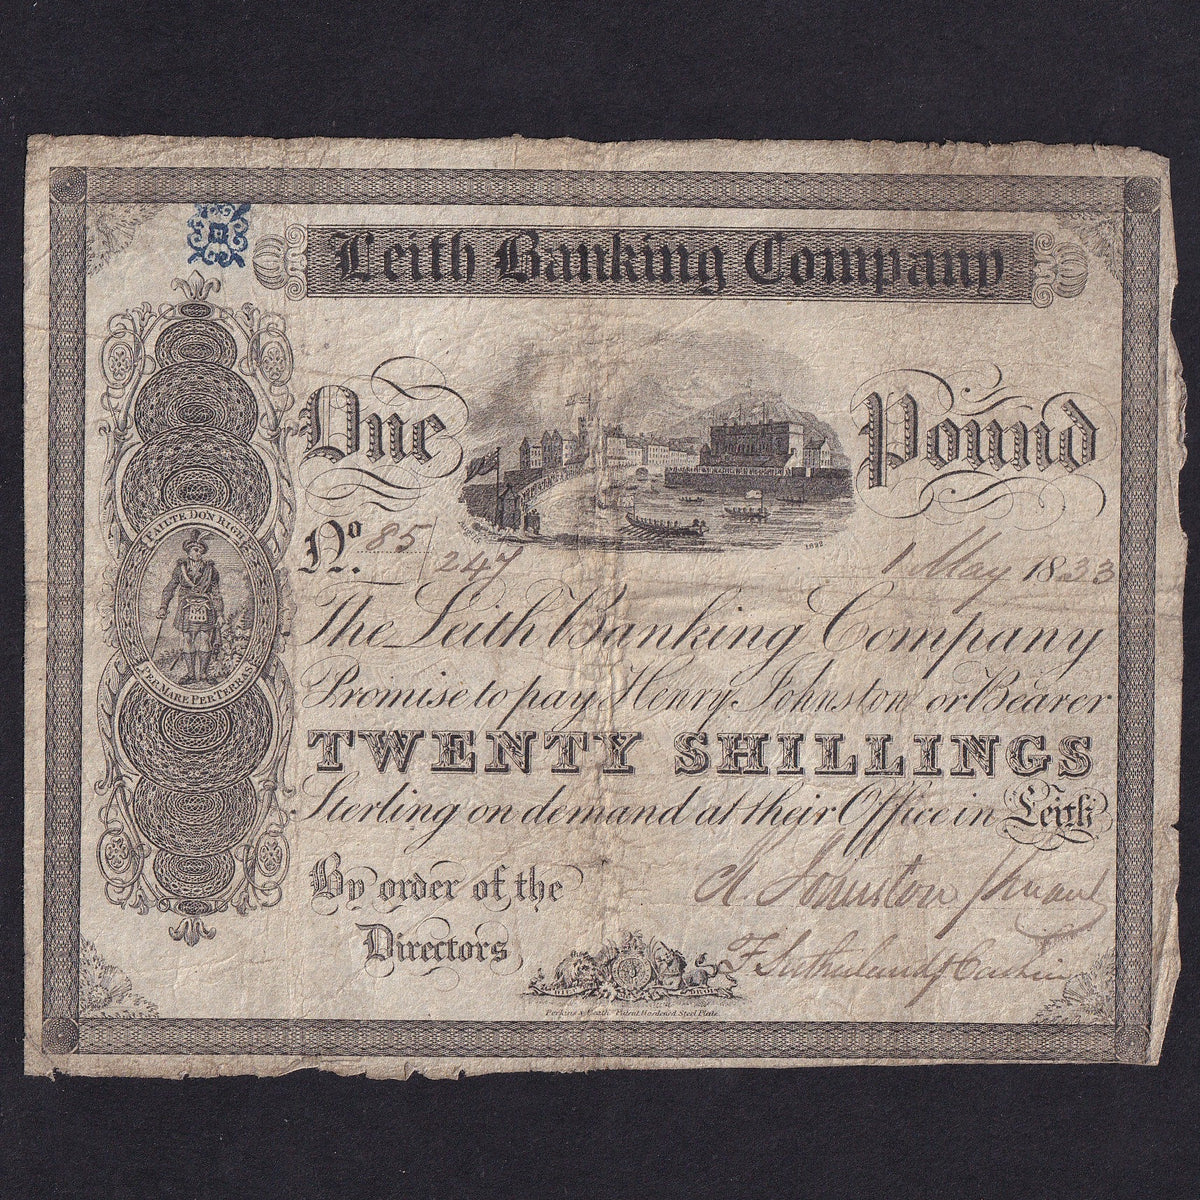 Leith Banking Company
One Pound
1822
No. 85/247 1 May 1833
FAILTE DON RIGH
PER MARE PER TERRAS
The Leith Banking Company
Promise to pay Henry Johnston or Bearer
TWENTY SHILLINGS
Sterling on demand at their Office in Leith
By order of the
Directors
H. Johnston
F Sutherland Cashier
Perkins & Heath Patent Hardened Steel Plate